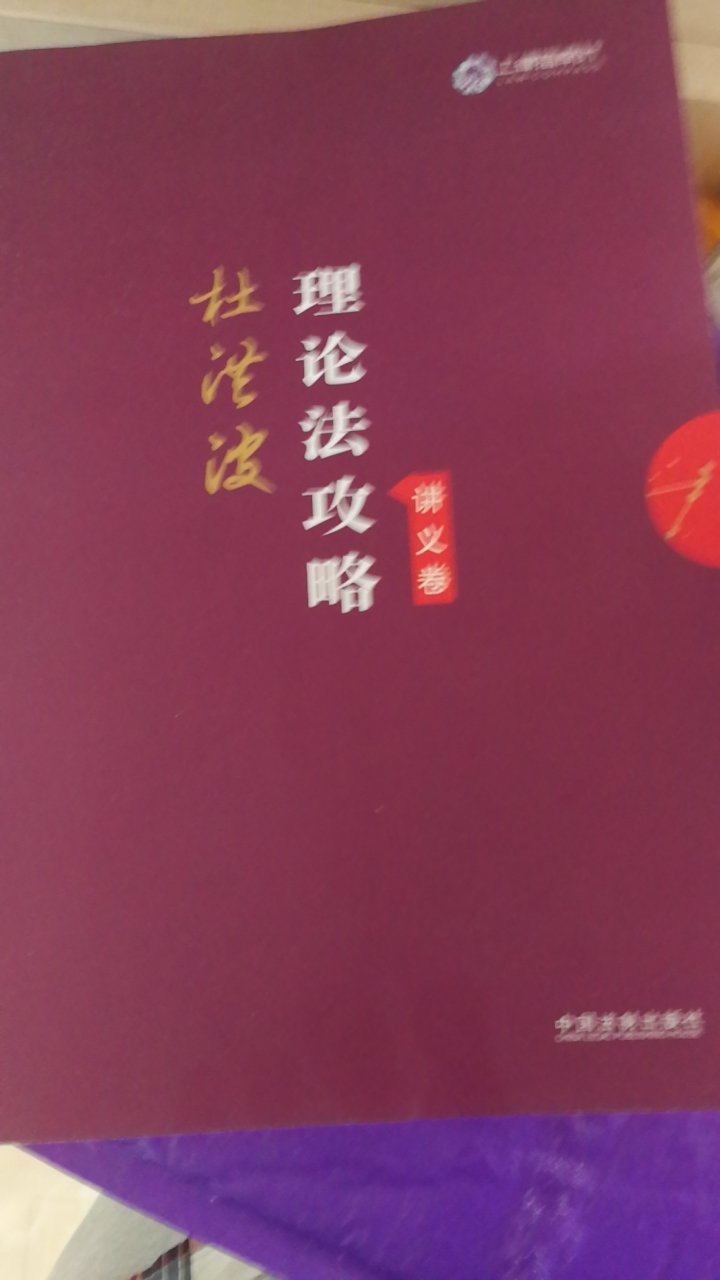 理论法攻略
讲义卷
杜洪波
中国法制出版社